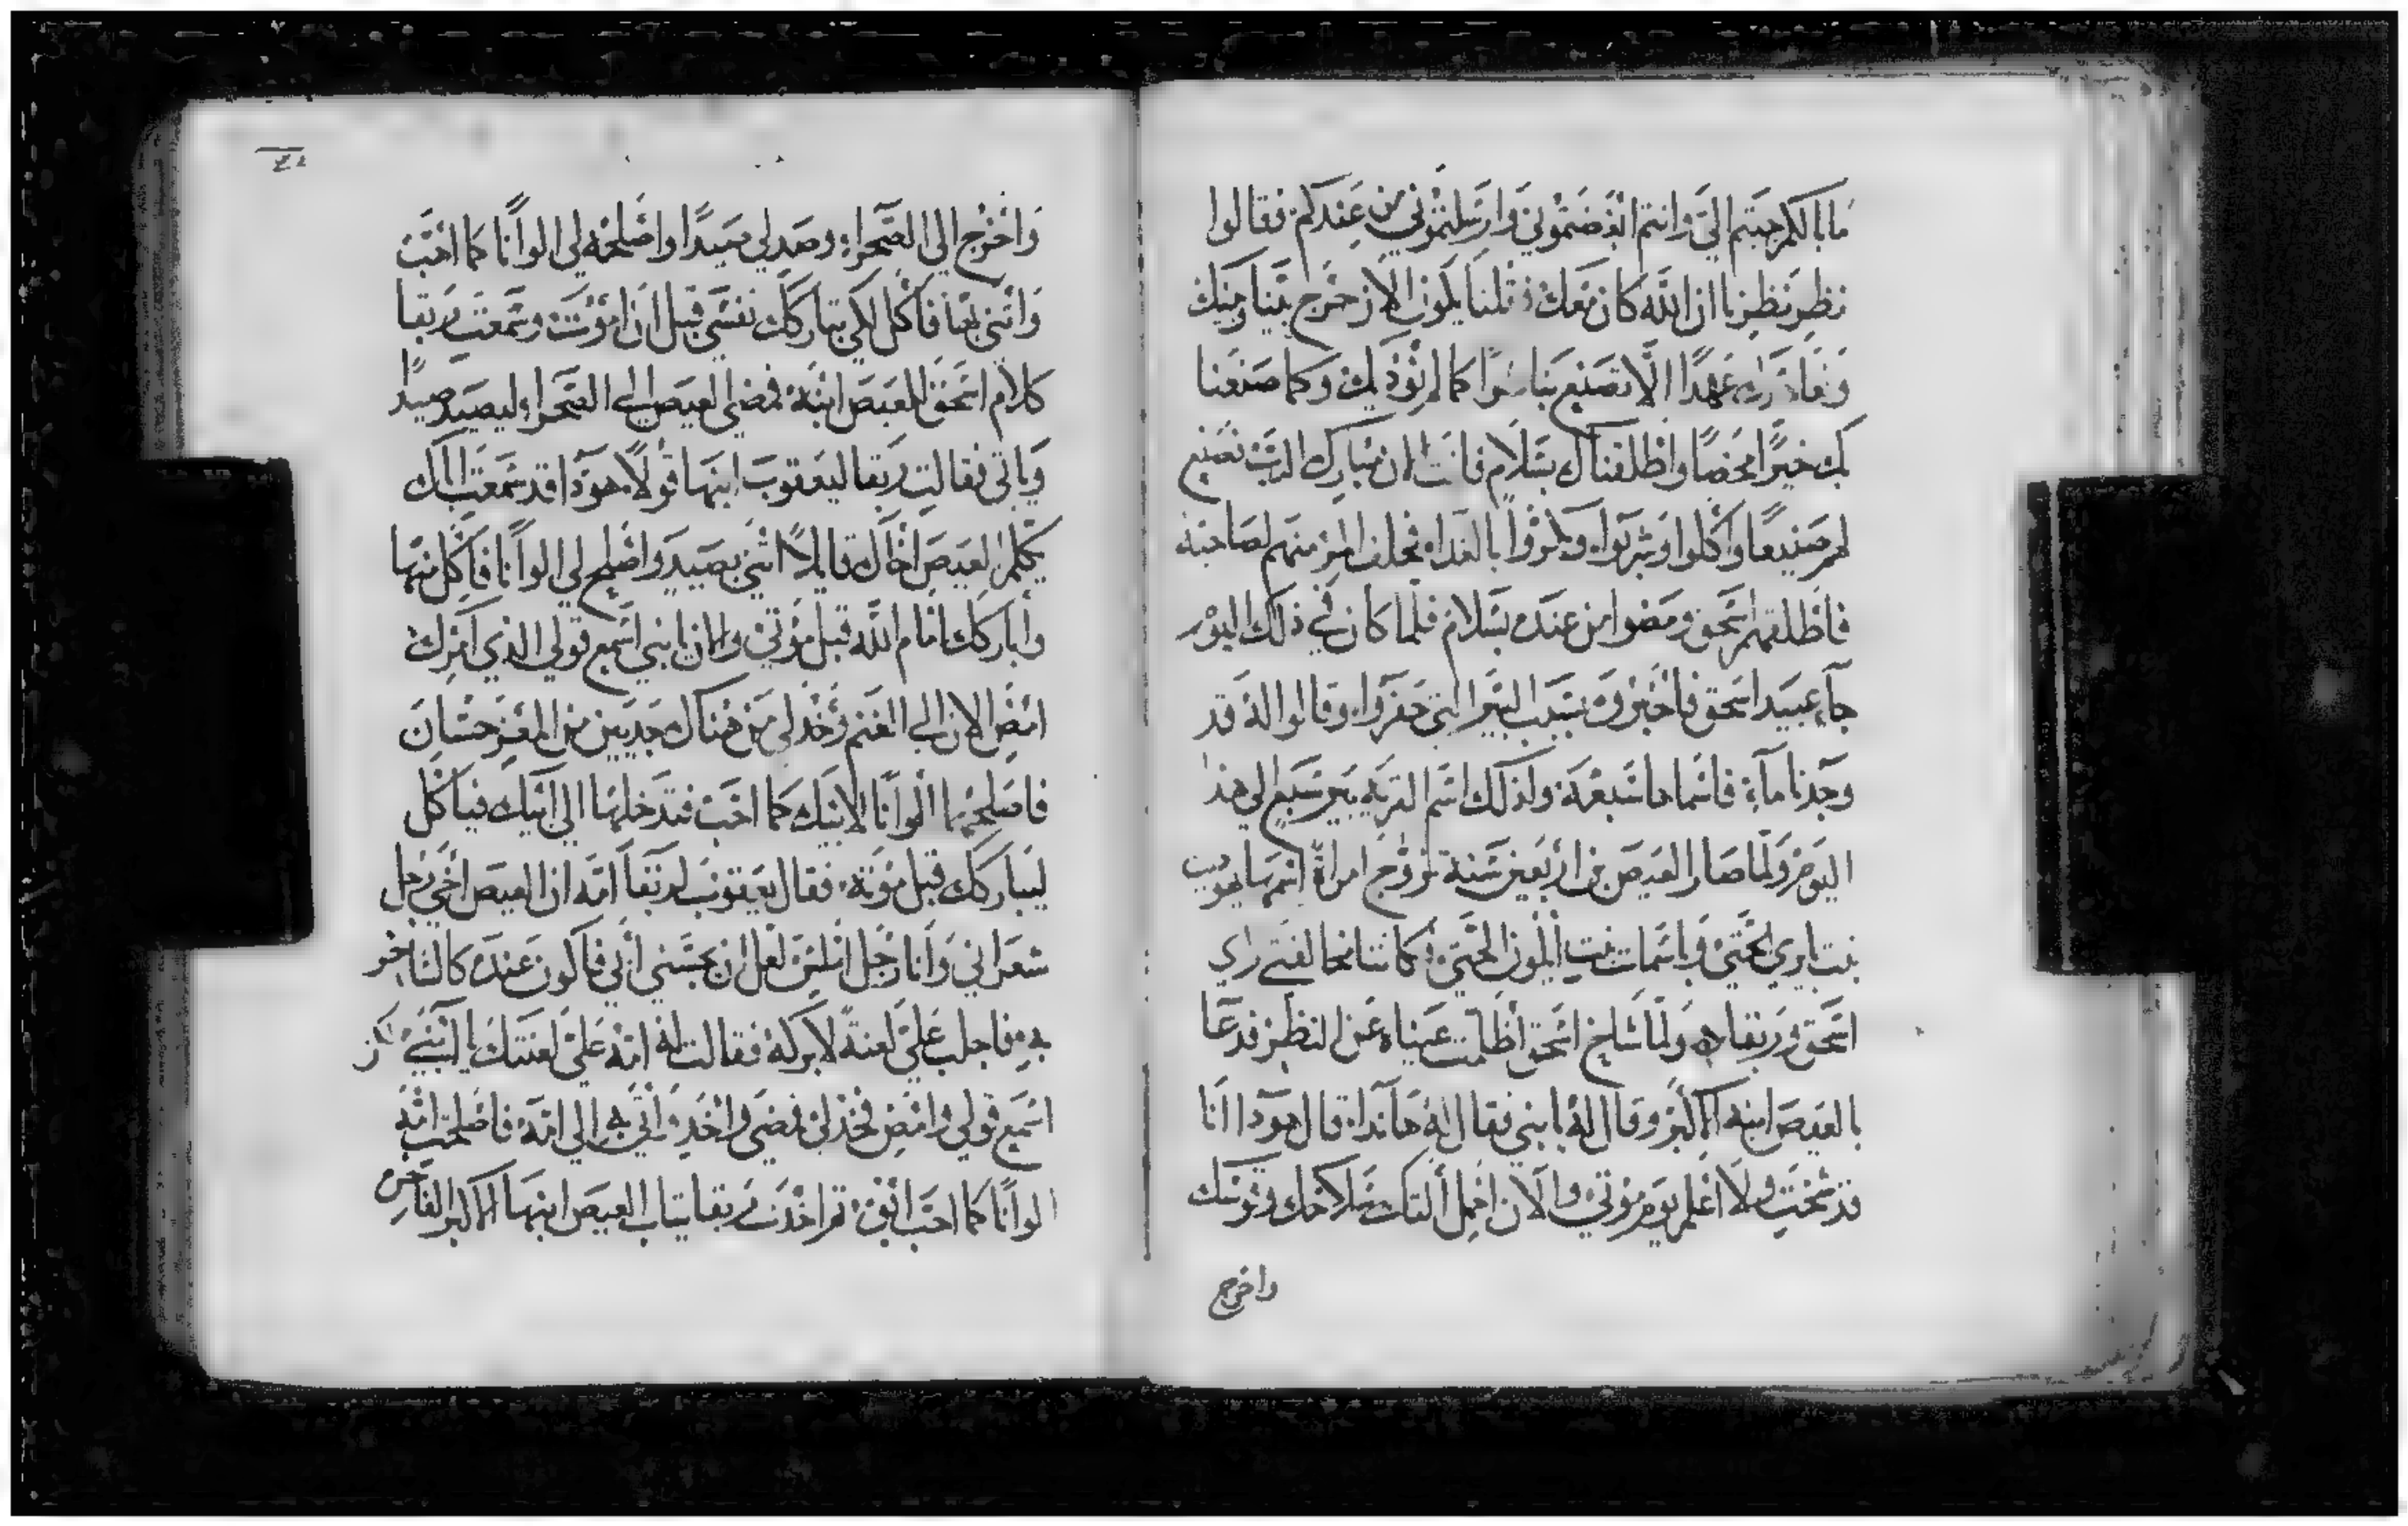 ما بالكم جيتم الىّ وانتم ابغضتموني وارسلتموني من عندكم فقالوا
نظر نظرنا ان الله كان معك قلنا يكون الان حرج بيننا وبينك
عهدًا الّا تصنع بنا سوًا كما لم نؤذيك وكما صنعنا
بك خيرًا محضًا واطلقناك بسلام فانت الان مبارك الرب فصنع
لهم صنيعا واكلوا وشربوا وبكروا بالغداه فحلف المرء منهم لصاحبه
فاطلقهم اسحق ومضوا من عنده بسلام فلما كان في ذلك اليوم
جآء عبيد اسحق فاخبروه بسبب البير التي حفروا وقالوا له قد
وجدنا مآء فاسماها شبعة ولذلك اسم القريه بير سبع الى هذا
اليوم ولما صار العيص بن اربعين سنة تزوج امراة اسمها يهوديت
بنت بايري الحتى وباسمات بنت ايلون الحتى وكانتا مخالفتي راي
اسحق وربقا ولما شاخ اسحق أظلمت عيناه عن النظر فدعا
بالعيص ابنه الاكبر وقال له يا بني فقال له هآنذا قال هوذا انا
قد شخت ولا اعلم يوم موتي والان احمل ألتك سلاحك وقوسك
واخرج
واخرج الى الصحراء وصد لي صيدًا واصلحه لي الوانا كما احب
وأتني بها فآكل لكي تباركك نفسي قبل ان اموت وسمعت ربقا
كلام اسحق للعيص ابنه فمضى العيص الى الصحراء ليصيد صيدًا
وياتي فقالت ربقا ليعقوب ابنها قولًا هوذا قد سمعت اباك
يكلم العيص اخاك قايلًا ائتني بصيد واصلح لي الوانا فآكل منها
وأباركك امام الله قبل موتي والان يا بني اسمع قولي الذي آمرك
امض الان الى الغنم وخذ لي من هناك جديين من المعز حسان
فاصلحهما الوانا لابيك كما احب فتدخلها الى ابيك فياكل
ليباركك قبل موته فقال يعقوب لربقا امه ان العيص اخي رجل
شعراني وأنا رجل املس لعل ان يجسني أبي فاكون عنده كالساخر
به فاجلب علي لعنة لا بركة فقالت له امه علي لعنتك يا بني
اسمع قولي وامض فخذ لي فمضى واخذ وأتى به الى امه فاصلحت امه
الوانا كما احب ابوه ثم اخذت ربقا ثياب العيص ابنها الاكبر الفاخرة